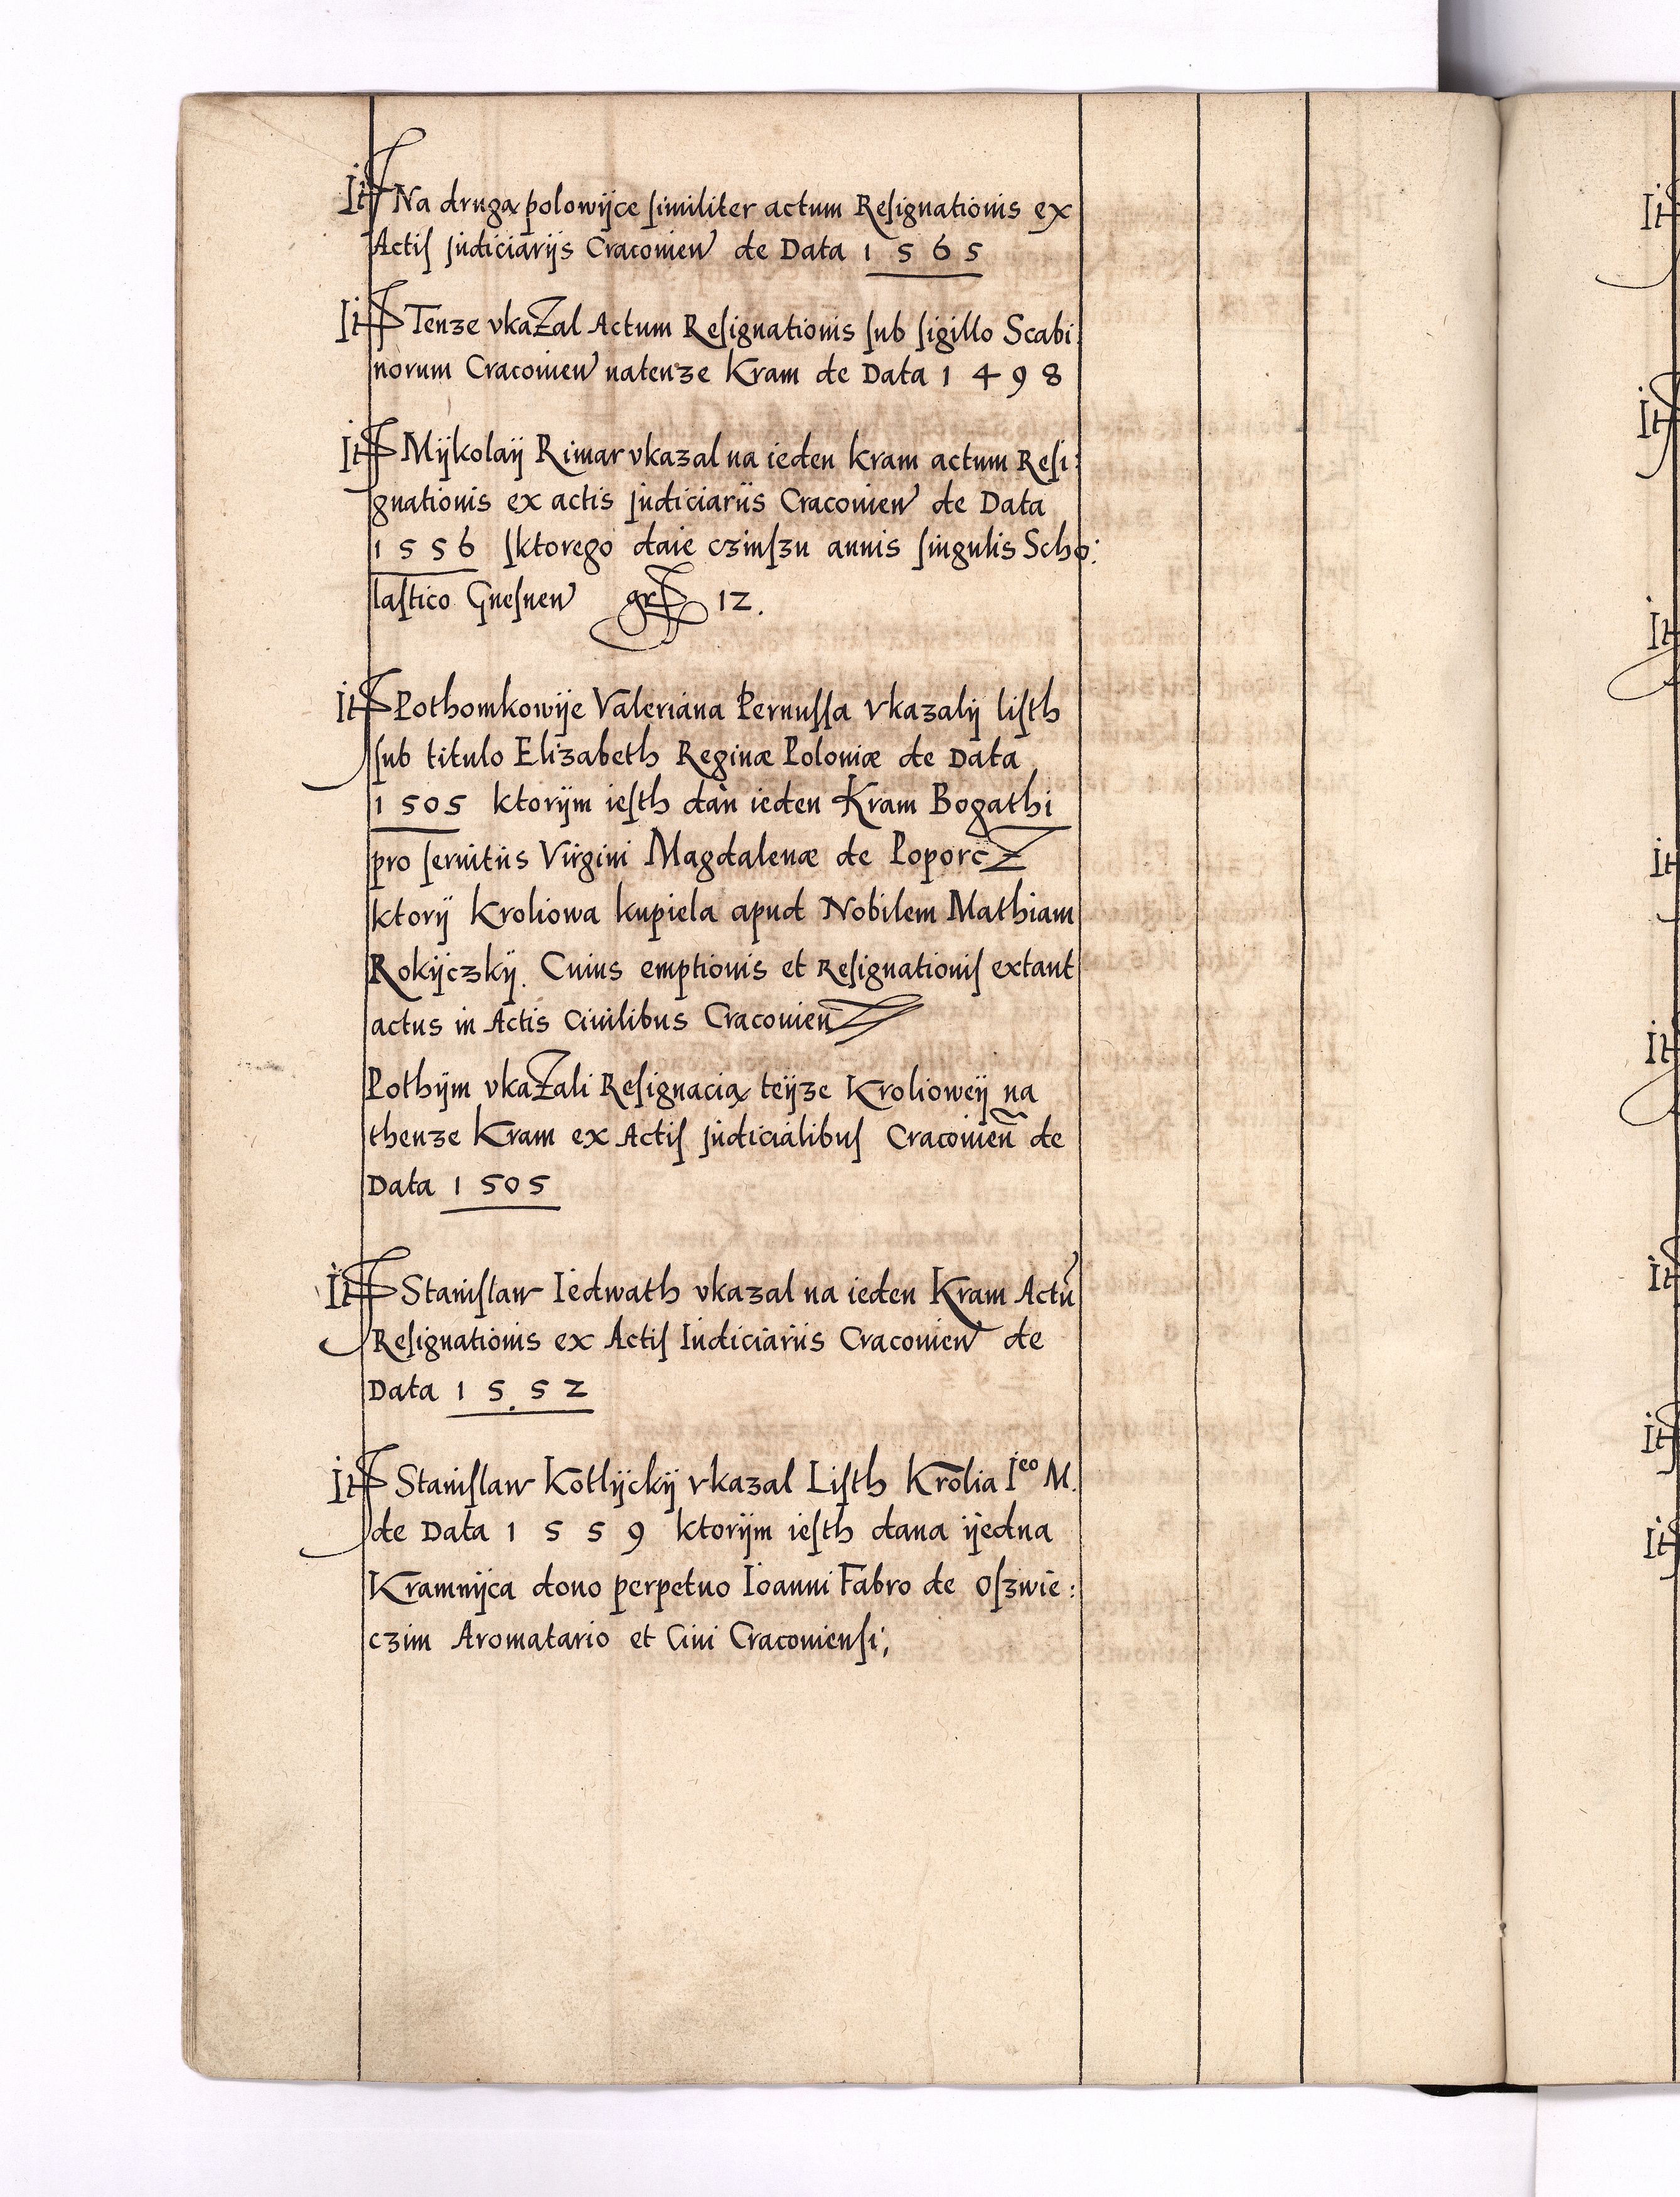 It Na drugą polowÿce ſimiliter actum Reſignationis ex
Actiſ Judiciarÿs Cracovien de Data 1565
It Tenze vkazal Actum Reſignationis ſub ſigillo Scabi:
norum Cracovien natenze Kram de Data 1498
It Mÿkolaÿ Rimar vkazal na ieden kram actum Reſi:
gnationis ex actis Judiciariis Cracovien de Data
1556 ſktorego daie czinſzu annis ſingulis Scho:
laſtico Gneſnen grſ 12.
It Pothomkowÿe Valeriana Pernuſſa vkazalÿ liſth
ſub titulo Elizabeth Reginæ Poloniæ de Data
1505 ktorÿm ieſth dan ieden Kram Bogathi
pro ſeruitiis Virgini Magdalenæ de Poporcz
ktorÿ Kroliowa kupiela apud Nobilem Mathiam
Rokÿczkÿ. Cuius emptionis et Reſignationiſ extant
actus in Actis Ciuilibus Cracovien
Pothÿm vkazali Reſignacią teÿze Krolioweÿ na
thenze Kram ex Actiſ Judicialibuſ Cracovien̄ de
Data 1505
It Staniſlaw Iedwath vkazal na ieden Kram Actū
Reſignationis ex Actiſ Iudiciariis Cracovien de
Data 1552
It Staniſlaw Kotlÿckÿ vkazal Liſth Krolia Ieo M.
de Data 1559 ktorÿm ieſth dana ÿedna
Kramnÿca dono perpetuo Ioanni Fabro de Oſzwie:
czim Aromatario et Ciui Cracovienſi;
It
It
It
It
It
It
It
It